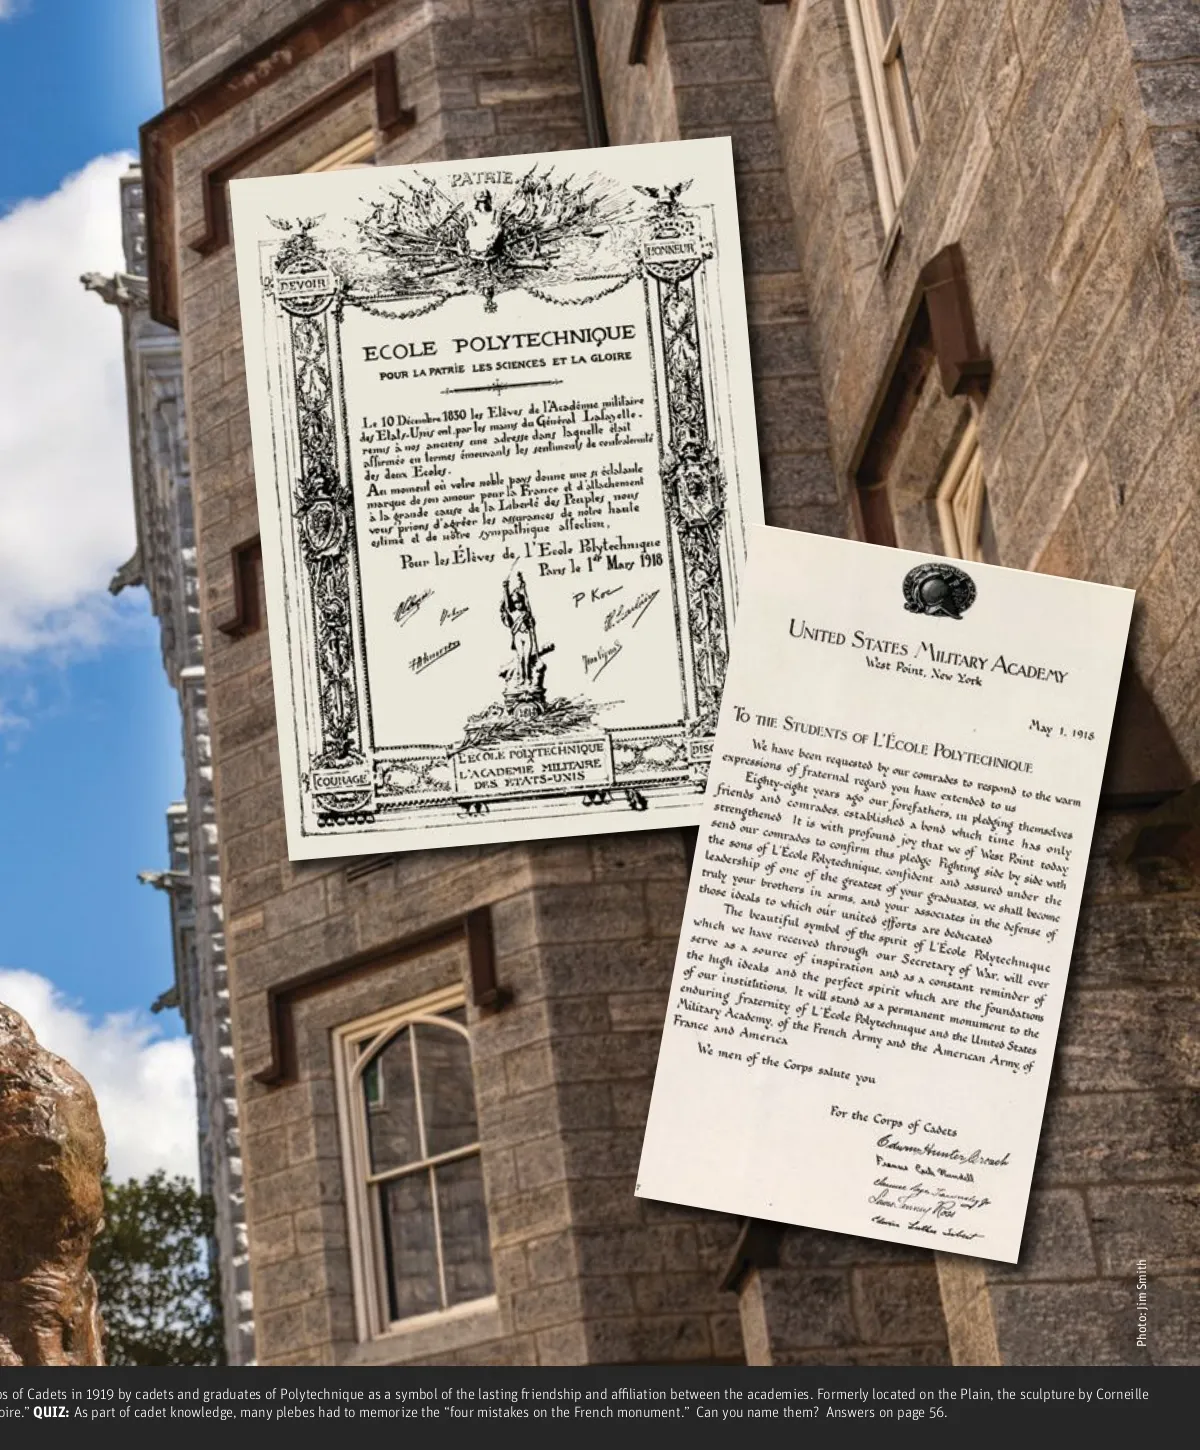 PATRIE
DEVOIR
HONNEUR
ECOLE POLYTECHNIQUE
POUR LA PATRIE LES SCIENCES ET LA GLOIRE
Le 10 Décembre 1830 les Elèves de l'Académie militaire
des Etats-Unis ont, par les mains du Général Lafayette,
remis à nos anciens une adresse dans laquelle était
affirmée en termes émouvants les sentiments de confraternité
des deux Ecoles.
Au moment où votre noble pays donne une si éclatante
marque de son amour pour la France et d'attachement
à la grande cause de la Liberté des Peuples, nous
vous prions d'agréer les assurances de notre haute
estime et de notre sympathique affection,
Pour les Élèves de l'Ecole Polytechnique
Paris le 1er Mars 1918
P Koc
L'ECOLE POLYTECHNIQUE
A
L'ACADEMIE MILITAIRE
DES ETATS-UNIS
COURAGE
DISC
UNITED STATES MILITARY ACADEMY
West Point, New York
May 1, 1918
TO THE STUDENTS OF L'ÉCOLE POLYTECHNIQUE
We have been requested by our comrades to respond to the warm
expressions of fraternal regard you have extended to us
Eighty-eight years ago our forefathers, in pledging themselves
friends and comrades, established a bond which time has only
strengthened. It is with profound joy that we of West Point today
send our comrades to confirm this pledge. Fighting side by side with
the sons of L'École Polytechnique, confident and assured under the
leadership of one of the greatest of your graduates, we shall become
truly your brothers in arms, and your associates in the defense of
those ideals to which our united efforts are dedicated
The beautiful symbol of the spirit of L'École Polytechnique
which we have received through our Secretary of War, will ever
serve as a source of inspiration and as a constant reminder of
the high ideals and the perfect spirit which are the foundations
of our institutions. It will stand as a permanent monument to the
enduring fraternity of L'École Polytechnique and the United States
Military Academy, of the French Army and the American Army, of
France and America
We men of the Corps salute you
For the Corps of Cadets
Edwin Hunter
Ross
Edwin Luther Sibert
Photo: Jim Smith
ps of Cadets in 1919 by cadets and graduates of Polytechnique as a symbol of the lasting friendship and affiliation between the academies. Formerly located on the Plain, the sculpture by Corneille
oire." QUIZ: As part of cadet knowledge, many plebes had to memorize the "four mistakes on the French monument." Can you name them? Answers on page 56.